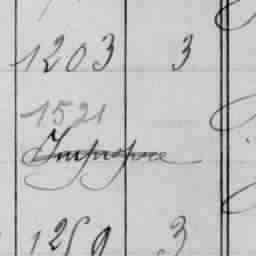 1203 3
1521
1259 3